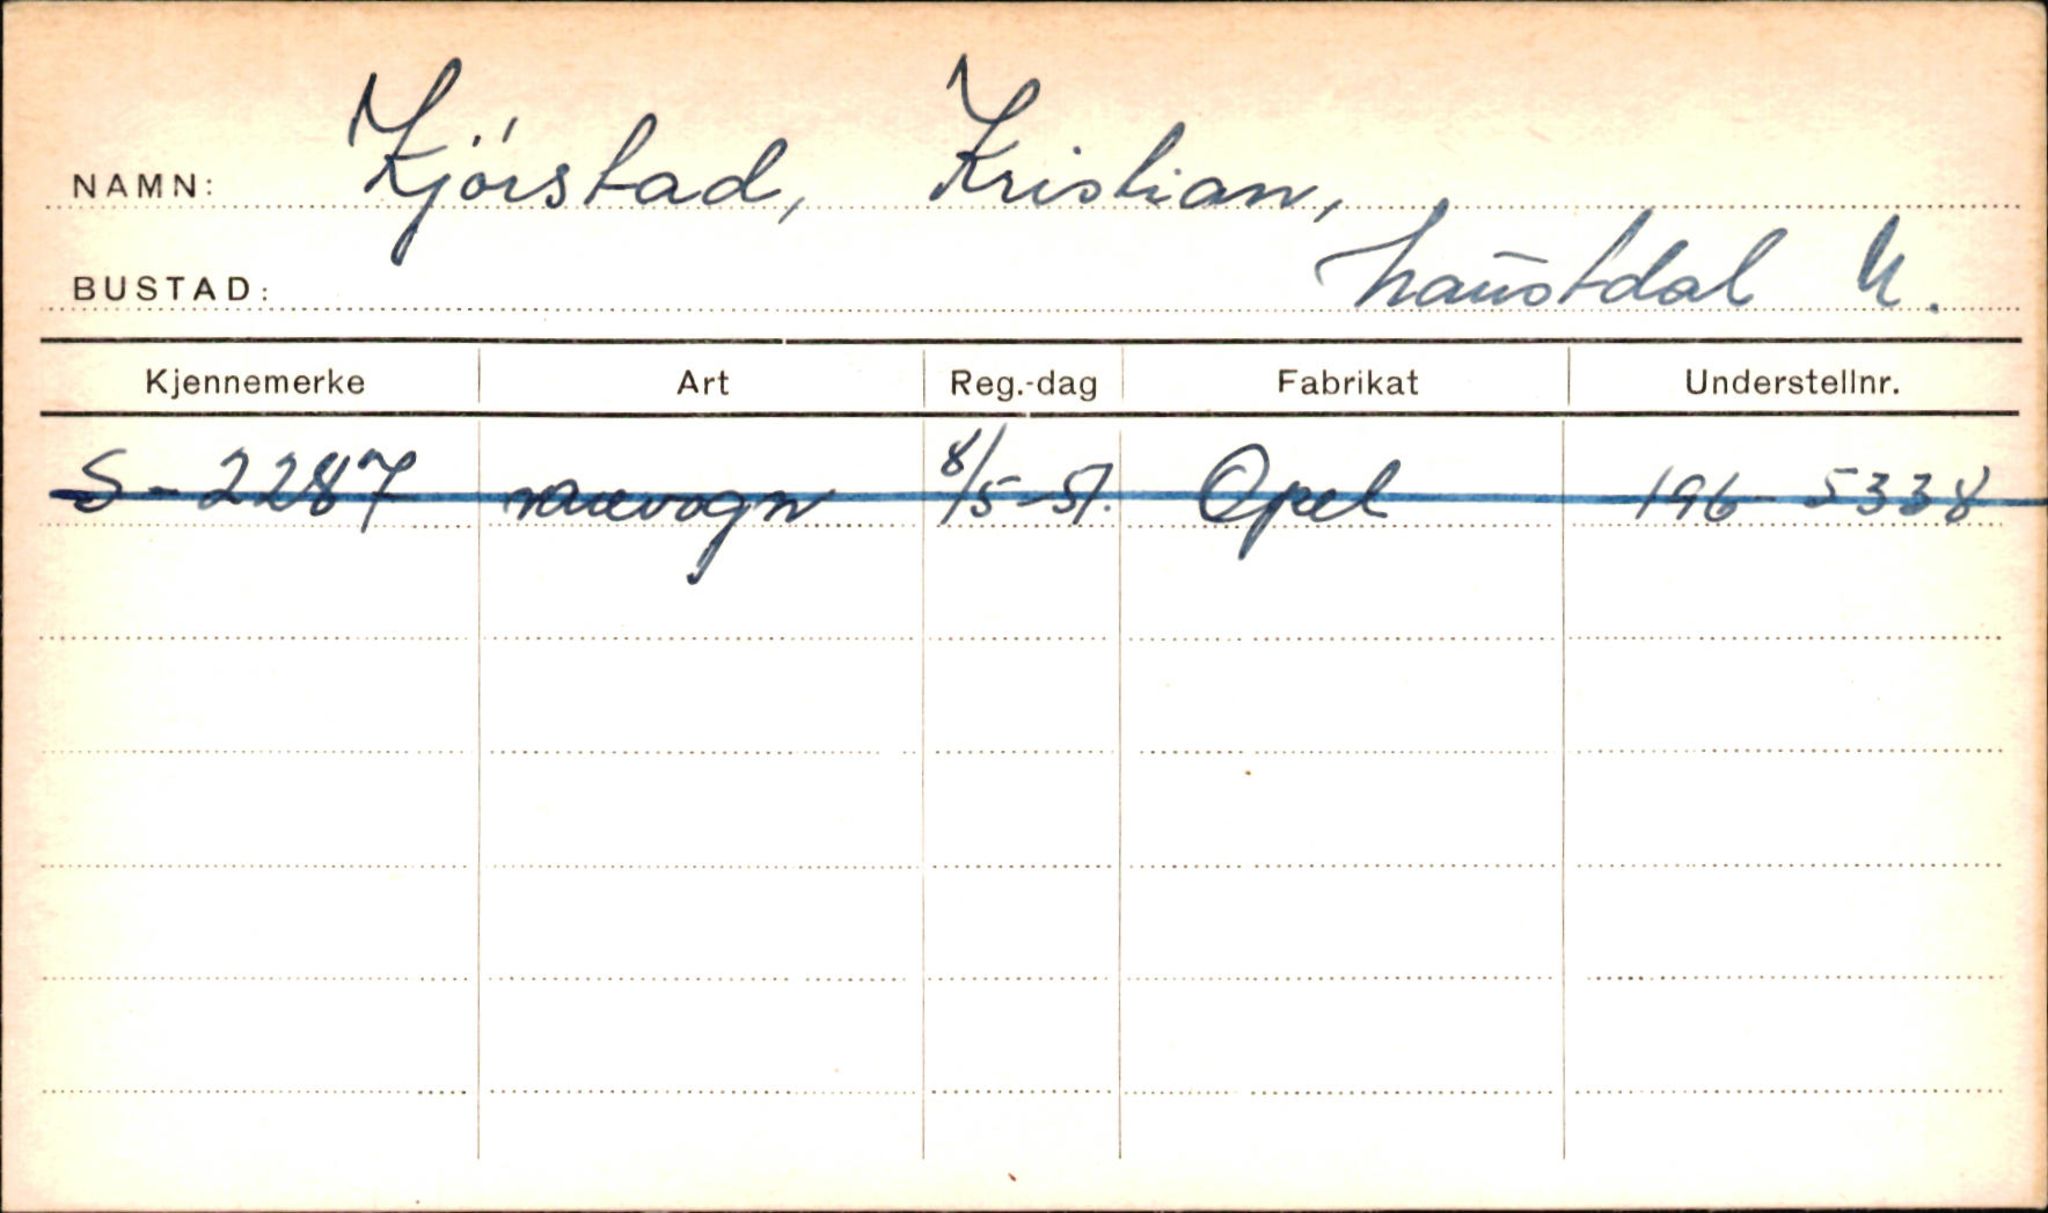 NAMN: Kjórstad, Kristian,
BUSTAD: Haustdal N.
Kjennemerke Art Reg.-dag Fabrikat Understellnr.
S-2287 varevogn 8/5-51. Opel 196-5338